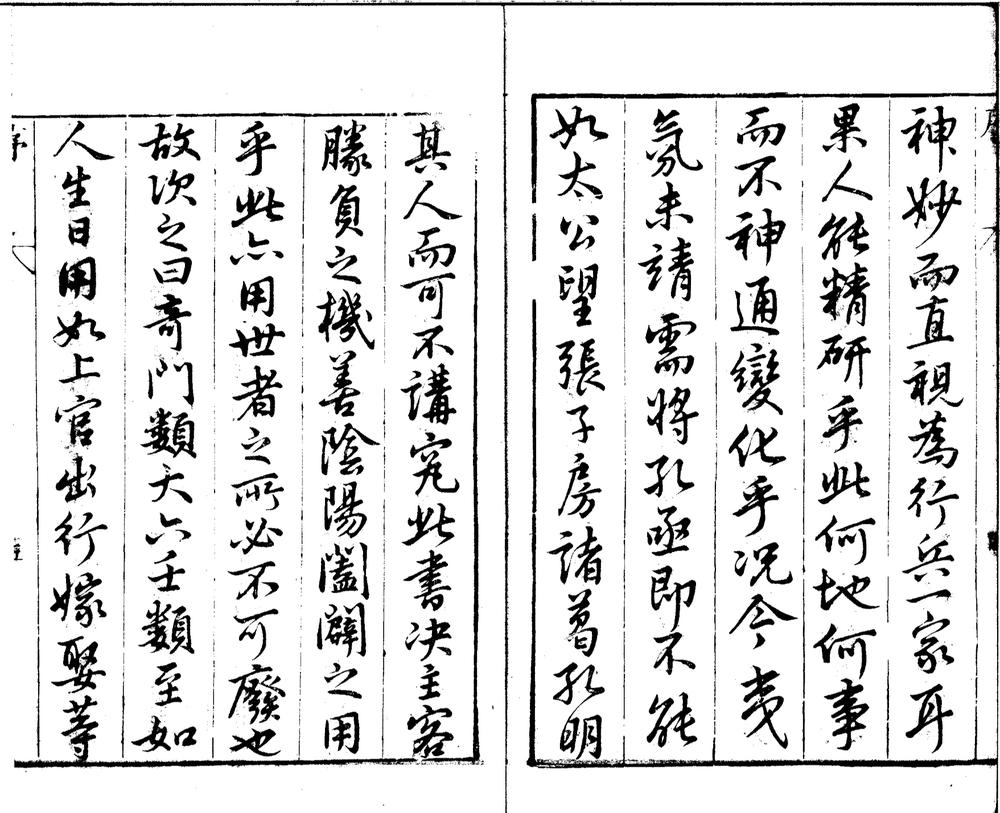 神妙而直視為行兵一家耳
果人能精研乎此何地何事
而不神通變化乎况今夷
氛未靖需將孔亟即不能
如太公望張子房諸葛孔明
其人而可不講究此書决主客
勝負之機善陰陽闔闢之用
乎此亦用世者之所必不可廢也
故次之曰奇門類大六壬類至如
人生日用如上官出行嫁娶等
序